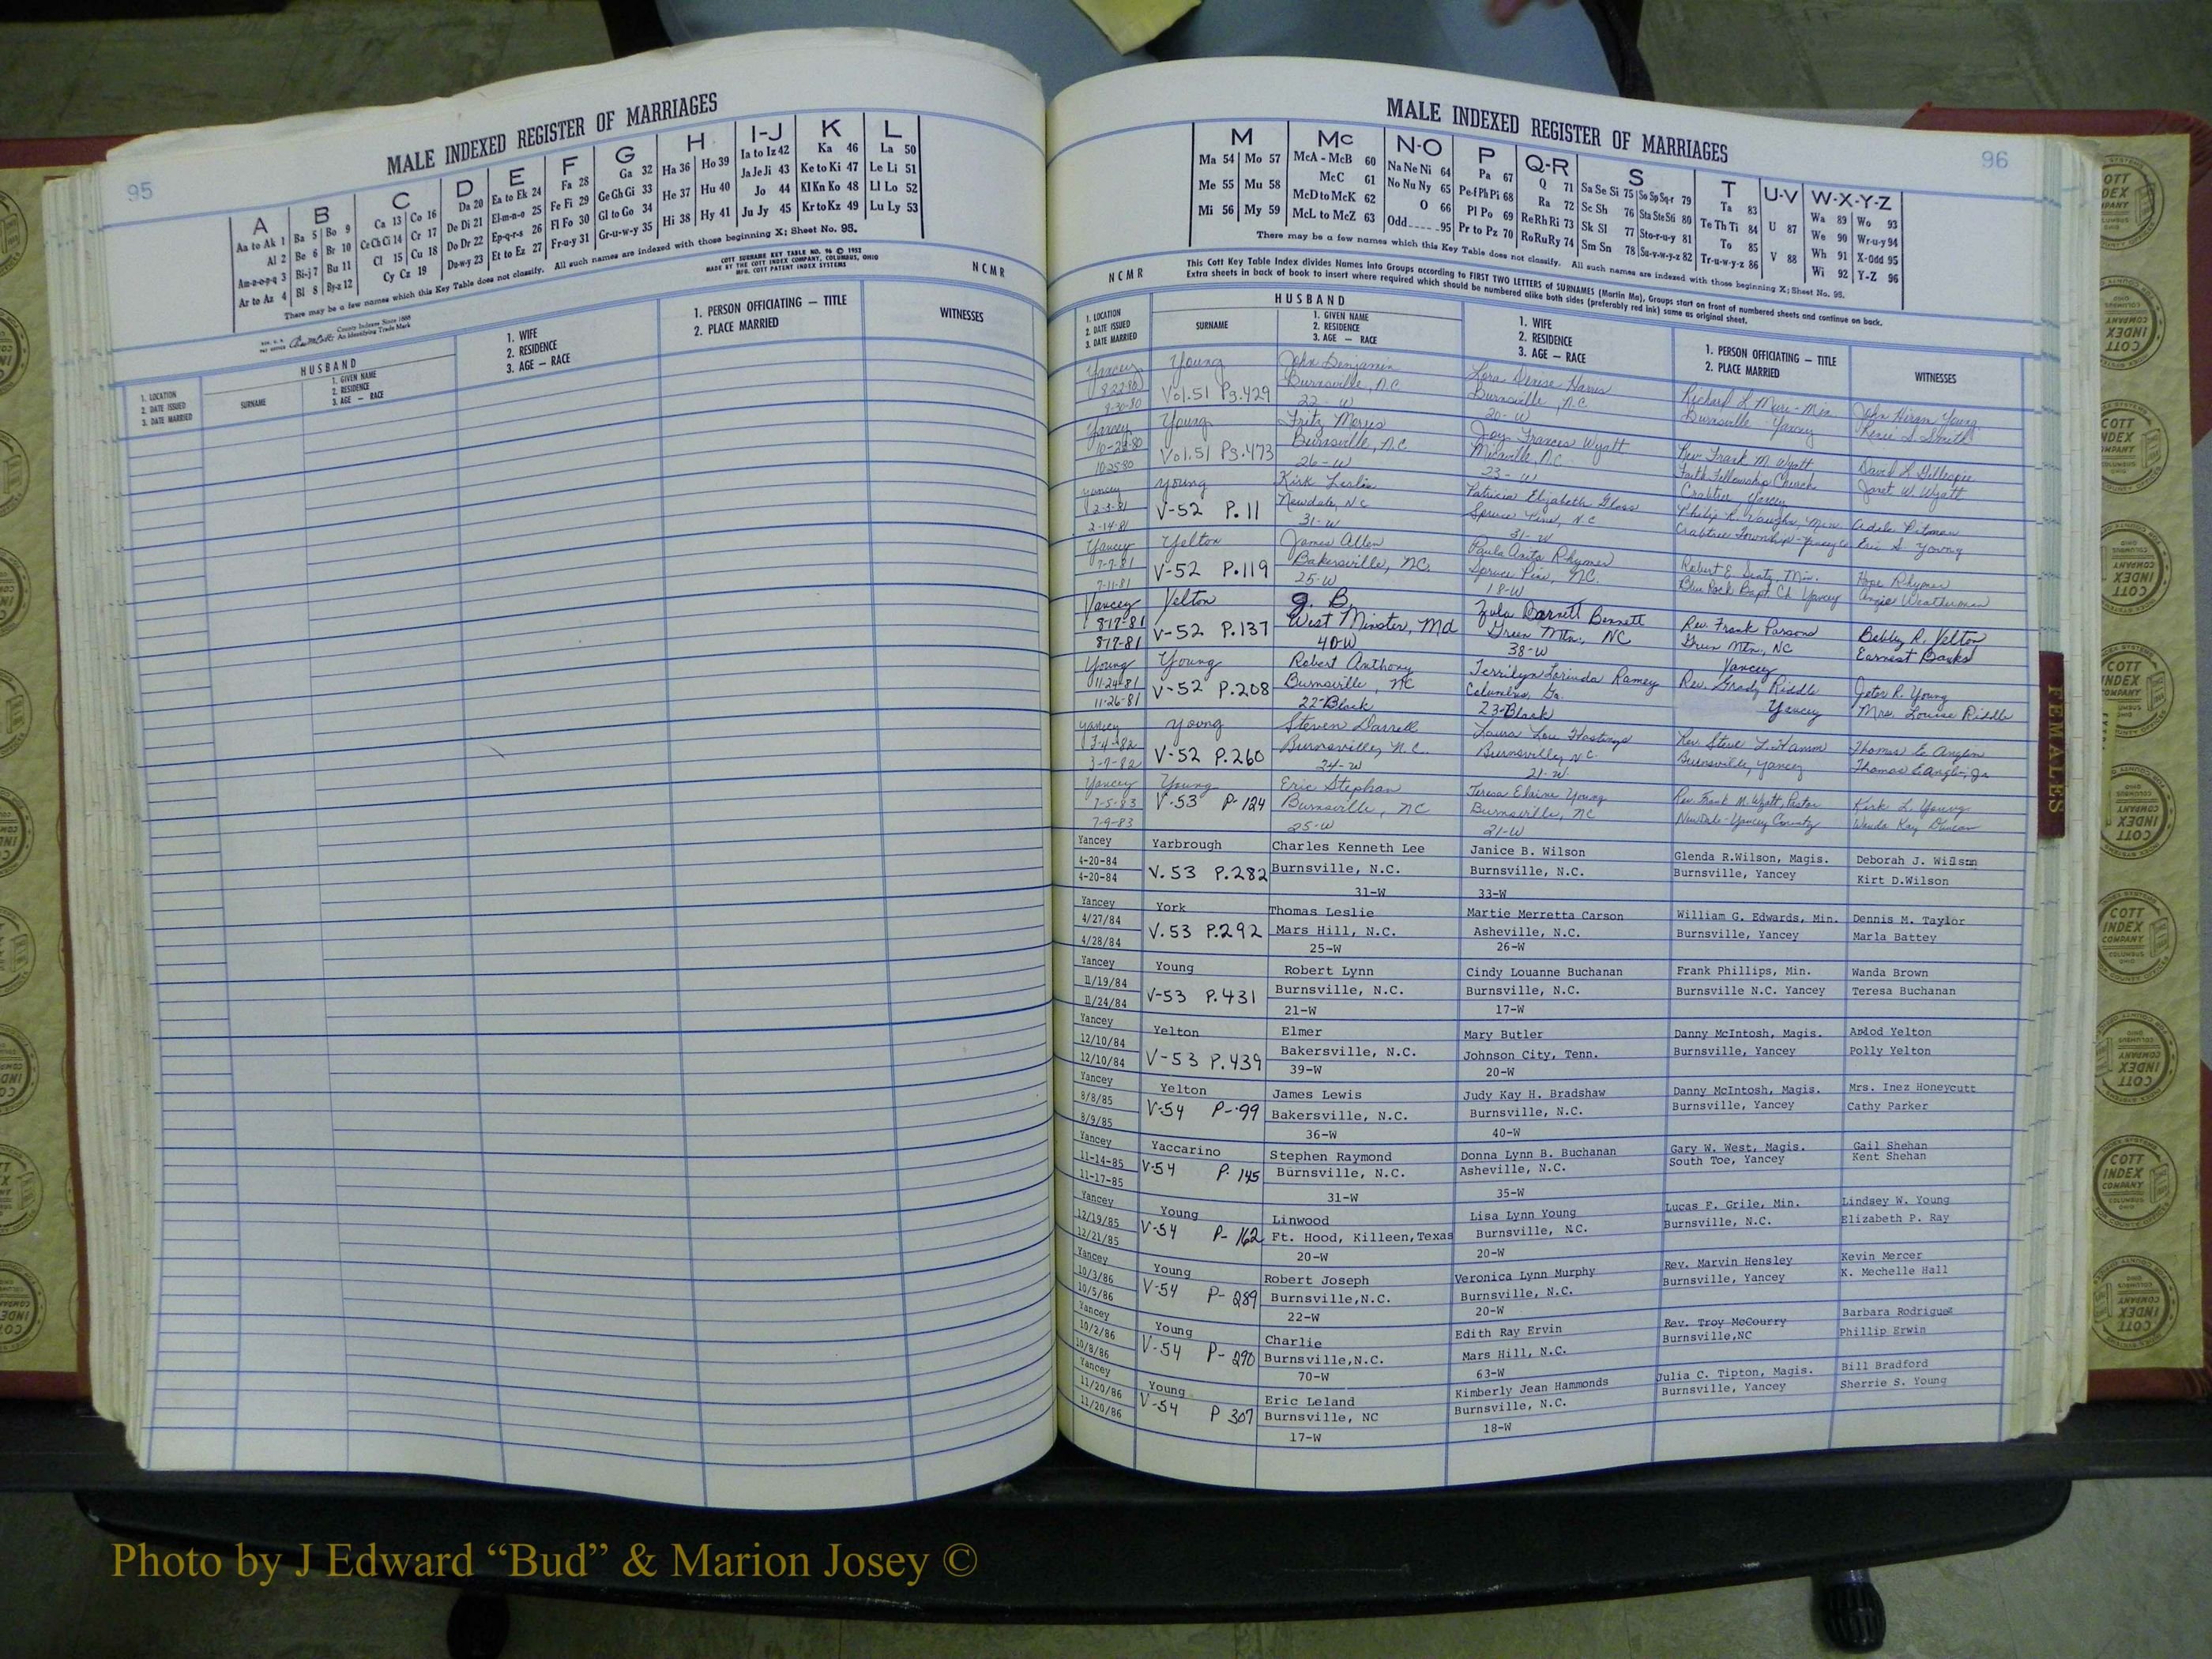 95
MALE INDEXED REGISTER OF MARRIAGES
A B C D E F G H I-J K L
Aa to Ak 1 Ba 5 Bo 9 Ca 13 Co 16 Da 20 Ea to Ek 24 Fa 28 Ga 32 Ha 36 Ho 39 Ia to Iz 42 Ka 46 La 50
Al 2 Be 6 Br 10 Ce Ch Ci 14 Cr 17 De Di 21 El-m-n-o 25 Fe Fi 29 Ge Gh Gi 33 He 37 Hu 40 Ja Je Ji 43 Ke to Ki 47 Le Li 51
Am-n-o-p-q 3 Bi-j 7 Bu 11 Cl 15 Cu 18 Do Dr 22 Ep-q-r-s 26 Fl Fo 30 Gl to Go 34 Hi 38 Hy 41 Jo 44 Kl Kn Ko 48 Ll Lo 52
Ar to Az 4 Bl 8 By-z 12 Cy Cz 19 Du-w-y 23 Et to Ez 27 Fr-u-y 31 Gr-u-w-y 35 Ju Jy 45 Kr to Kz 49 Lu Ly 53
There may be a few names which this Key Table does not classify. All such names are indexed with those beginning X; Sheet No. 95.
COTT SURNAME KEY TABLE NO. 96 © 1952
MADE BY THE COTT INDEX COMPANY, COLUMBUS, OHIO
MFG. COTT PATENT INDEX SYSTEMS
NCMR
County Indexes Since 1888
An Identifying Trade Mark
1. LOCATION
2. DATE ISSUED
3. DATE MARRIED
HUSBAND
SURNAME
1. GIVEN NAME
2. RESIDENCE
3. AGE — RACE
1. WIFE
2. RESIDENCE
3. AGE — RACE
1. PERSON OFFICIATING — TITLE
2. PLACE MARRIED
WITNESSES
96
MALE INDEXED REGISTER OF MARRIAGES
M Mc N-O P Q-R S T U-V W-X-Y-Z
Ma 54 Mo 57 McA - McB 60 Na Ne Ni 64 Pa 67 Q 71 Sa Se Si 75 So Sp Sq-r 79 Ta 83 U 87 Wa 89 Wo 93
Me 55 Mu 58 McC 61 No Nu Ny 65 Pe-f Ph Pi 68 Ra 72 Sc Sh 76 Sta Ste Sti 80 Te Th Ti 84 We 90 Wr-u-y 94
Mi 56 My 59 McD to McK 62 O 66 Pl Po 69 Re Rh Ri 73 Sk Sl 77 Sto-r-u-y 81 To 85 V 88 Wh 91 X-Odd 95
McL to McZ 63 Odd 95 Pr to Pz 70 Ro Ru Ry 74 Sm Sn 78 Su-v-w-y-z 82 Tr-u-w-y-z 86 Wi 92 Y-Z 96
There may be a few names which this Key Table does not classify. All such names are indexed with those beginning X; Sheet No. 95.
NCMR
This Cott Key Table Index divides Names into Groups according to FIRST TWO LETTERS of SURNAMES (Martin Ma), Groups start on front of numbered sheets and continue on back.
Extra sheets in back of book to insert where required which should be numbered alike both sides (preferably red ink) same as original sheet.
1. LOCATION
2. DATE ISSUED
3. DATE MARRIED
HUSBAND
SURNAME
1. GIVEN NAME
2. RESIDENCE
3. AGE — RACE
1. WIFE
2. RESIDENCE
3. AGE — RACE
1. PERSON OFFICIATING — TITLE
2. PLACE MARRIED
WITNESSES
Yancey Young John Benjamin Lora Denise Harris Richard L. John Hiram Young
8-22-80 Vol. 51 Pg. 429 Burnsville, N.C. Burnsville, N.C. Burnsville - Yancey Renee S. Smith
8-30-80 22 - W 20 - W
Yancey Young Fritz Joy Francis Wyatt Rev. Frank M. Wyatt David L. Gillespie
Vol. 51 Pg. 473 Burnsville, N.C. Micaville, N.C. Faith Fellowship Church Janet W. Wyatt
10-25-80 26 - W 23 - W Crabtree Yancey
Yancey Young Kirk Leslie Patricia Elizabeth Glass Philip R. Vaughn, Min. Adele Pitman
2-3-81 V-52 P.11 Newdale, NC Spruce Pine, N.C. Crabtree Township - Yancey Co Eric S. Young
2-14-81 31-W 31-W
Yancey Yelton James Allen Paula Anita Rhymer Robert E. Min. Hope Rhymer
7-7-81 V-52 P.119 Bakersville, NC. Spruce Pine, NC. Blue Rock Bapt. Ch. Yancey Angie Weatherman
7-11-81 25-W 18-W
Yancey Yelton J. B. Zula Bennett Rev. Frank Parsons Bobby R. Yelton
8-17-81 V-52 P.137 West Minster, Md Green Mtn., NC Green Mtn., NC Earnest Banks
8-17-81 40-W 38-W Yancey
Young Young Robert Anthony Terrilyn Lorinda Ramey Rev. Grady Riddle Jeter R. Young
11-24-81 V-52 P.208 Burnsville, NC Columbus, Ga. Yancey Mrs. Louise Riddle
11-26-81 22-Black 23-Black
Yancey Young Steven Darrell Laura Lou Hastings Rev. Steve Thomas E. Anglin
3-4-82 V-52 P.260 Burnsville, N.C. Burnsville, N.C. Burnsville, Yancey Thomas E. Anglin, Jr
3-7-82 24-W 21-W
Yancey Young Eric Stephan Teresa Elaine Young Rev. Frank M. Wyatt, Pastor Kirk L. Young
7-5-83 V-53 P-124 Burnsville, NC Burnsville, NC Newdale - Yancey County Wanda Kay Duncan
7-9-83 25-W 21-W
Yancey Yarbrough Charles Kenneth Lee Janice B. Wilson Glenda R.Wilson, Magis. Deborah J. Wilson
4-20-84 V. 53 P.282 Burnsville, N.C. Burnsville, N.C. Burnsville, Yancey Kirt D.Wilson
4-20-84 31-W 33-W
Yancey York Thomas Leslie Martie Merretta Carson William G. Edwards, Min. Dennis M. Taylor
4/27/84 V. 53 P.292 Mars Hill, N.C. Asheville, N.C. Burnsville, Yancey Marla Battey
4/28/84 25-W 26-W
Yancey Young Robert Lynn Cindy Louanne Buchanan Frank Phillips, Min. Wanda Brown
11/19/84 V-53 P.431 Burnsville, N.C. Burnsville, N.C. Burnsville N.C. Yancey Teresa Buchanan
11/24/84 21-W 17-W
Yancey Yelton Elmer Mary Butler Danny McIntosh, Magis. Yelton
12/10/84 V-53 P.439 Bakersville, N.C. Johnson City, Tenn. Burnsville, Yancey Polly Yelton
12/10/84 39-W 20-W
Yancey Yelton James Lewis Judy Kay H. Bradshaw Danny McIntosh, Magis. Mrs. Inez Honeycutt
8/8/85 V-54 P-99 Bakersville, N.C. Burnsville, N.C. Burnsville, Yancey Cathy Parker
8/9/85 36-W 40-W
Yancey Yaccarino Stephen Raymond Donna Lynn B. Buchanan Gary W. West, Magis. Gail Shehan
11-14-85 V-54 P. 145 Burnsville, N.C. Asheville, N.C. South Toe, Yancey Kent Shehan
11-17-85 31-W 35-W
Yancey Young Linwood Lisa Lynn Young Lucas F. Grile, Min. Lindsey W. Young
12/19/85 V-54 P- 162 Ft. Hood, Killeen,Texas Burnsville, N.C. Burnsville, N.C. Elizabeth P. Ray
12/21/85 20-W 20-W
Yancey Young Robert Joseph Veronica Lynn Murphy Rev. Marvin Hensley Kevin Mercer
10/3/86 V-54 P- 289 Burnsville,N.C. Burnsville, N.C. Burnsville, Yancey K. Mechelle Hall
10/5/86 22-W 20-W
Yancey Young Charlie Edith Ray Ervin Rev. Troy McCourry Barbara Rodriguez
10/2/86 V-54 P- 290 Burnsville,N.C. Mars Hill, N.C. Burnsville,NC Phillip Erwin
10/8/86 70-W 63-W
Yancey Young Eric Leland Kimberly Jean Hammonds Julia C. Tipton, Magis. Bill Bradford
11/20/86 V-54 P 307 Burnsville, NC Burnsville, N.C. Burnsville, Yancey Sherrie S. Young
11/20/86 17-W 18-W
FEMALES
COTT
INDEX
COMPANY
COLUMBUS
OHIO
Photo by J Edward “Bud” & Marion Josey ©